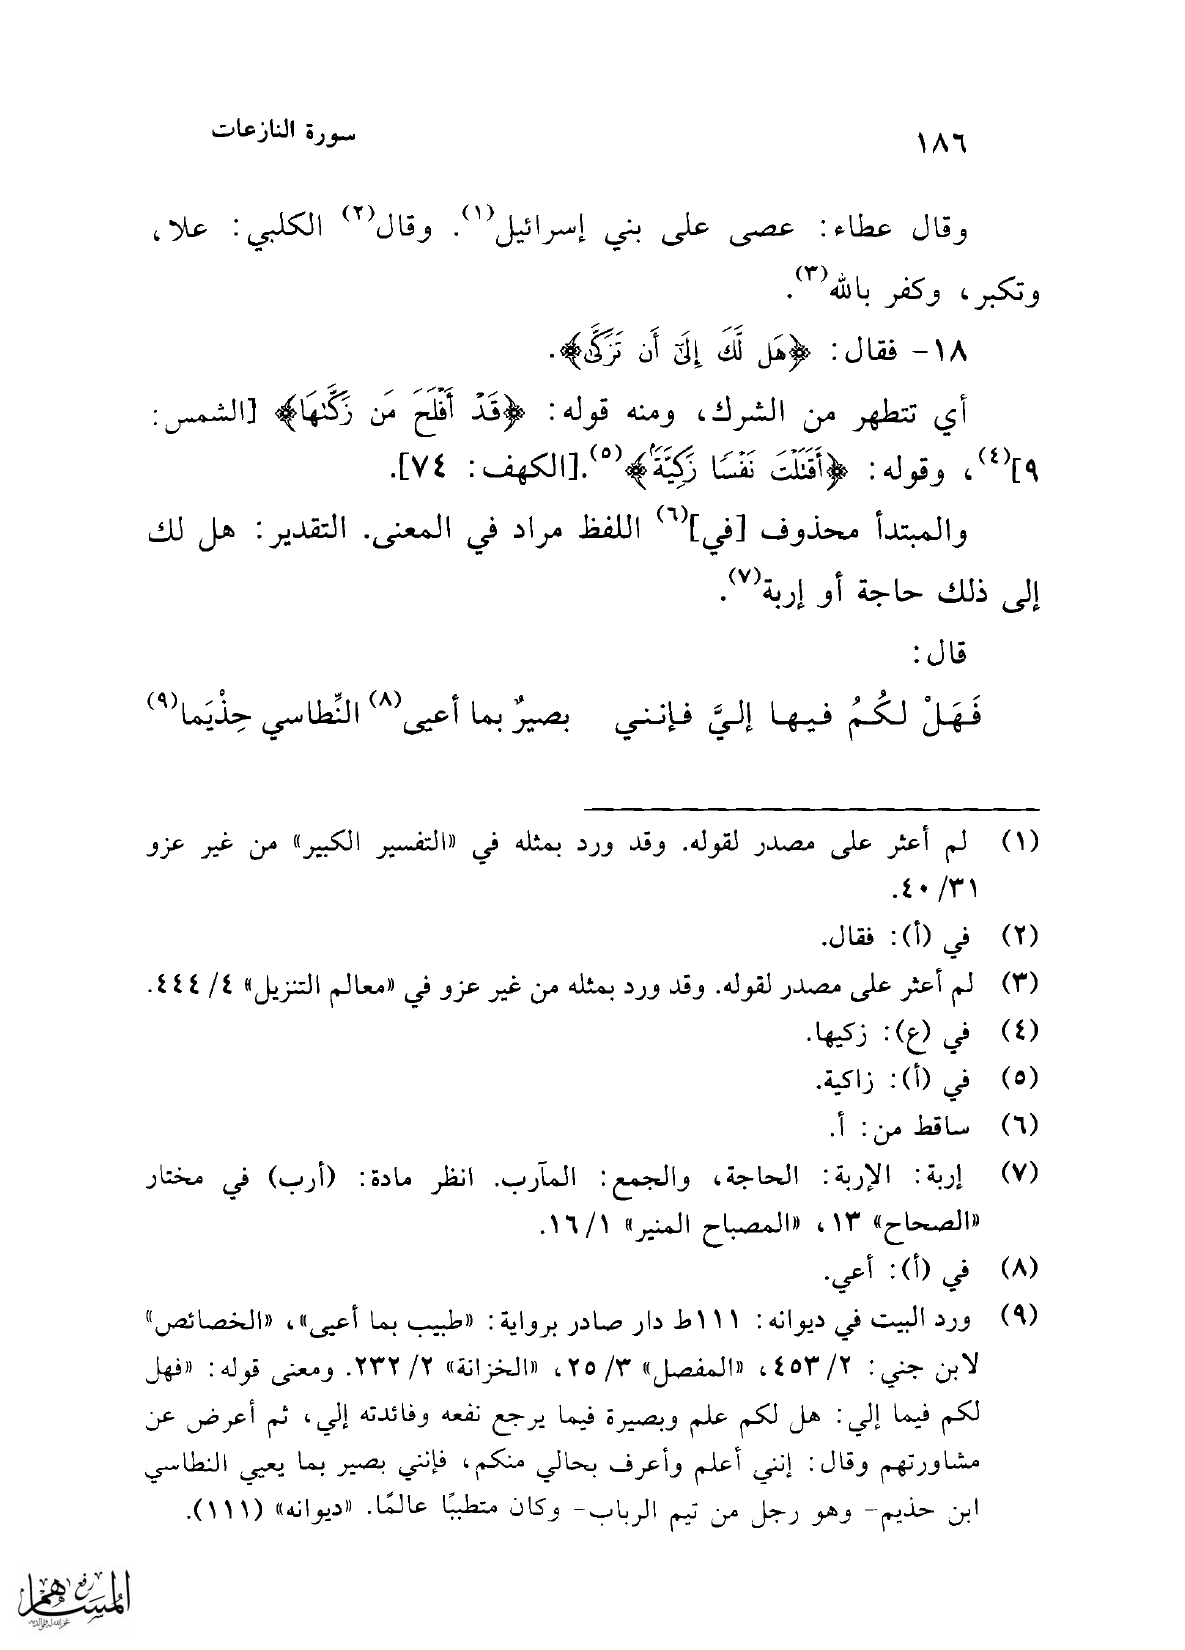 ١٨٦ سورة النازعات
وقال عطاء: عصى على بني إسرائيل(١). وقال(٢) الكلبي: علا،
وتكبر، وكفر بالله(٣).
١٨- فقال: ﴿هَل لَّكَ إِلَىٰٓ أَن تَزَكَّىٰ﴾.
أي تتطهر من الشرك، ومنه قوله: ﴿قَدْ أَفْلَحَ مَن زَكَّىٰهَا﴾ [الشمس:
٩](٤)، وقوله: ﴿أَقَتَلْتَ نَفْسًا زَكِيَّةً﴾(٥).[الكهف: ٧٤].
والمبتدأ محذوف [في](٦) اللفظ مراد في المعنى. التقدير: هل لك
إلى ذلك حاجة أو إربة(٧).
قال:
فَهَلْ لكُمُ فيها إليَّ فإنني بصيرٌ بما أعيى(٨) النِّطاسي حِذْيَما(٩)
(١) لم أعثر على مصدر لقوله. وقد ورد بمثله في «التفسير الكبير» من غير عزو
٣١/ ٤٠.
(٢) في (أ): فقال.
(٣) لم أعثر على مصدر لقوله. وقد ورد بمثله من غير عزو في «معالم التنزيل» ٤/ ٤٤٤.
(٤) في (ع): زكيها.
(٥) في (أ): زاكية.
(٦) ساقط من: أ.
(٧) إربة: الإربة: الحاجة، والجمع: المآرب. انظر مادة: (أرب) في مختار
«الصحاح» ١٣، «المصباح المنير» ١/ ١٦.
(٨) في (أ): أعي.
(٩) ورد البيت في ديوانه: ١١١ط دار صادر برواية: «طبيب بما أعيى»، «الخصائص»
لابن جني: ٢/ ٤٥٣، «المفصل» ٣/ ٢٥، «الخزانة» ٢/ ٢٣٢. ومعنى قوله: «فهل
لكم فيما إلي: هل لكم علم وبصيرة فيما يرجع نفعه وفائدته إلي، ثم أعرض عن
مشاورتهم وقال: إنني أعلم وأعرف بحالي منكم، فإنني بصير بما يعيي النطاسي
ابن حذيم- وهو رجل من تيم الرباب- وكان متطببًا عالمًا. «ديوانه» (١١١).